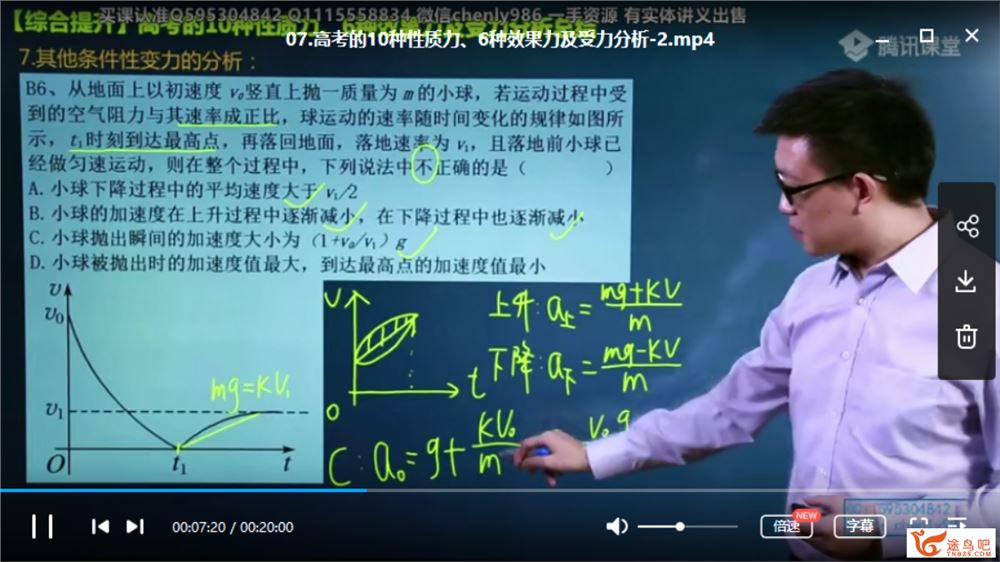 买课认准Q595304842 Q1115558834 微信chenly986 一手资源 有实体讲义出售
【综合提升】高考的10种性质力、6种效果力及受力分析
07.高考的10种性质力、6种效果力及受力分析-2.mp4
腾讯课堂
7.其他条件性变力的分析：
B6、从地面上以初速度 v₀竖直上抛一质量为 m 的小球，若运动过程中受
到的空气阻力与其速率成正比，球运动的速率随时间变化的规律如图所
示，t₁时刻到达最高点，再落回地面，落地速率为 v₁，且落地前小球已
经做匀速运动，则在整个过程中，下列说法中不正确的是（ ）
A. 小球下降过程中的平均速度大于 v₁/2
B. 小球的加速度在上升过程中逐渐减小，在下降过程中也逐渐减小
C. 小球抛出瞬间的加速度大小为（1+v₀/v₁）g
D. 小球被抛出时的加速度值最大，到达最高点的加速度值最小
v
v₀
v₁
O
t₁
t
mg=KV₁
V
0
t
上升:a上=(mg+KV)/m
下降:a下=(mg-KV)/m
C:a₀=g+KV₀/m
V₀g
00:07:20 / 00:20:00
倍速
NEW
字幕
595304842
途鸟吧
TNBZS.COM